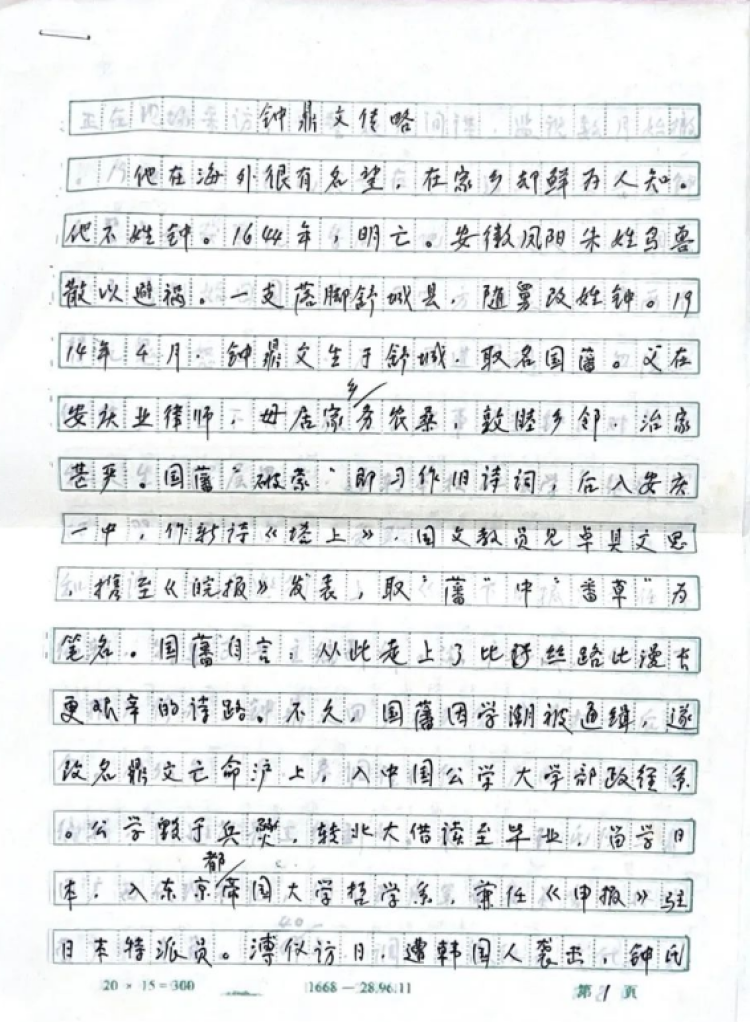 钟鼎文传略
他在海外很有名望，在家乡却鲜为人知。
他不姓钟。1644年，明亡。安徽凤阳朱姓鸟兽
散以避祸。一支落脚舒城县，随舅改姓钟。19
14年4月，钟鼎文生于舒城，取名国藩。父在
乡
安庆业律师，母居家务农桑，敦睦乡邻，治家
甚严。国藩“破蒙”即习作旧诗词，后入安庆
一中，作新诗《塔上》，国文教员见卓具文思
，携至《皖报》发表，取“藩”中“番草”为
笔名。国藩自言，从此走上了比 丝路比漫长
更艰辛的诗路。不久，国藩因学潮被通缉，遂
改名鼎文亡命沪上，入中国公学大学部政经系
。公学毁于兵燹，转北大借读至毕业，留学日
都
本，入东京帝国大学哲学系，兼任《申报》驻
日本特派员。溥仪访日，遭韩国人袭击，钟氏
20×15=300 1668—28.96.11 第1页